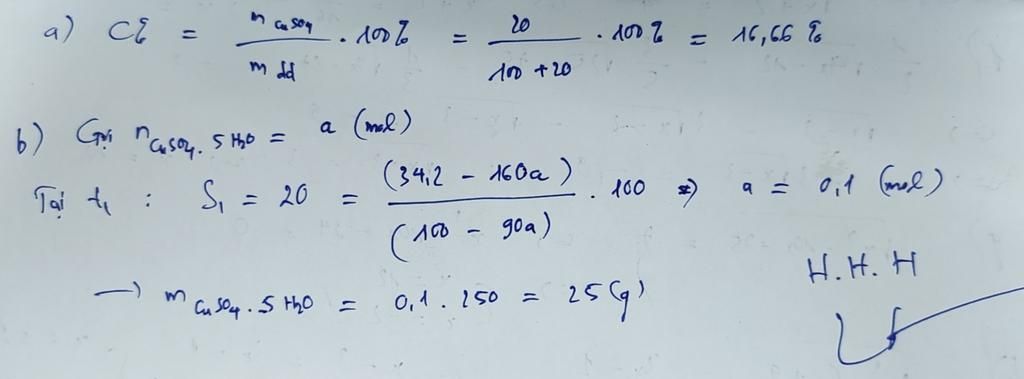 a) C% = m CuSO4 / m dd . 100% = 20 / (100 + 20) . 100% = 16,66 %
b) Gọi n CuSO4.5H2O = a (mol)
Tại t1 : S1 = 20 = (34,2 - 160a) / (100 - 90a) . 100 => a = 0,1 (mol)
→ m CuSO4.5H2O = 0,1 . 250 = 25 (g)
H.H.H